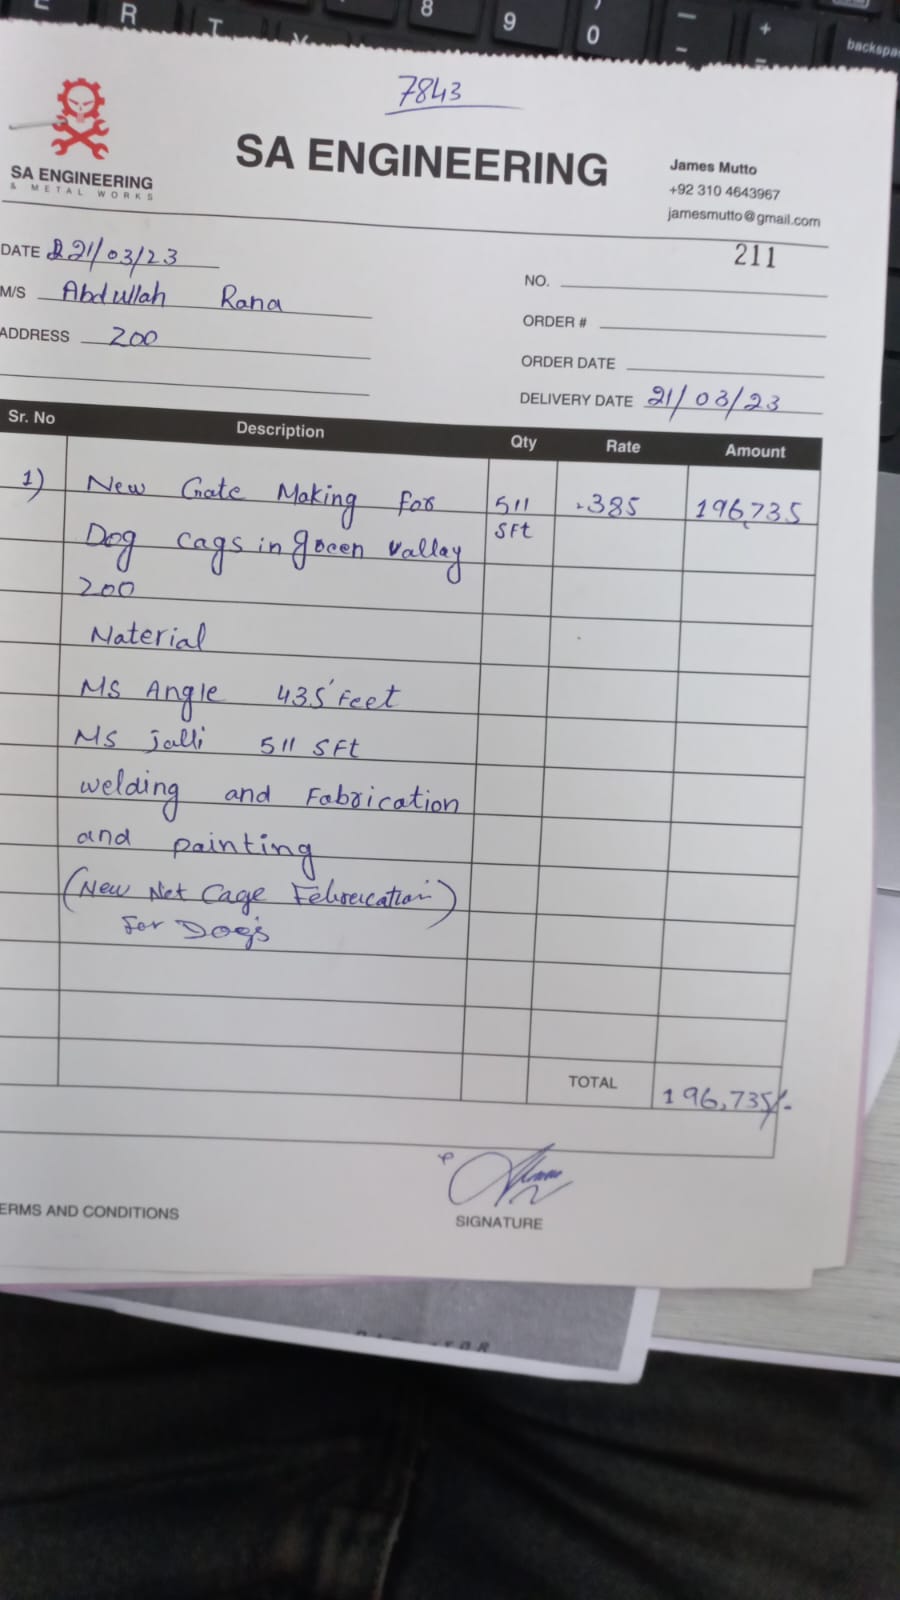 7843
SA ENGINEERING
& METAL WORKS
SA ENGINEERING
James Mutto
+92 310 4643967
jamesmutto@gmail.com
211
DATE 21/03/23
M/S Abdullah Rana
ADDRESS 200
NO.
ORDER #
ORDER DATE
DELIVERY DATE 21/03/23
Sr. No Description Qty Rate Amount
1) New Gate Making For 511 .385 196,735
Dog cags in green valley SFt
200
Material
MS Angle 435' Feet
MS jalli 511 SFt
welding and Fabrication
and painting
(New Net Cage Febrication)
For Dog's
TOTAL 196,735/-
ERMS AND CONDITIONS
SIGNATURE
8
9
0
E R T Y
backspa